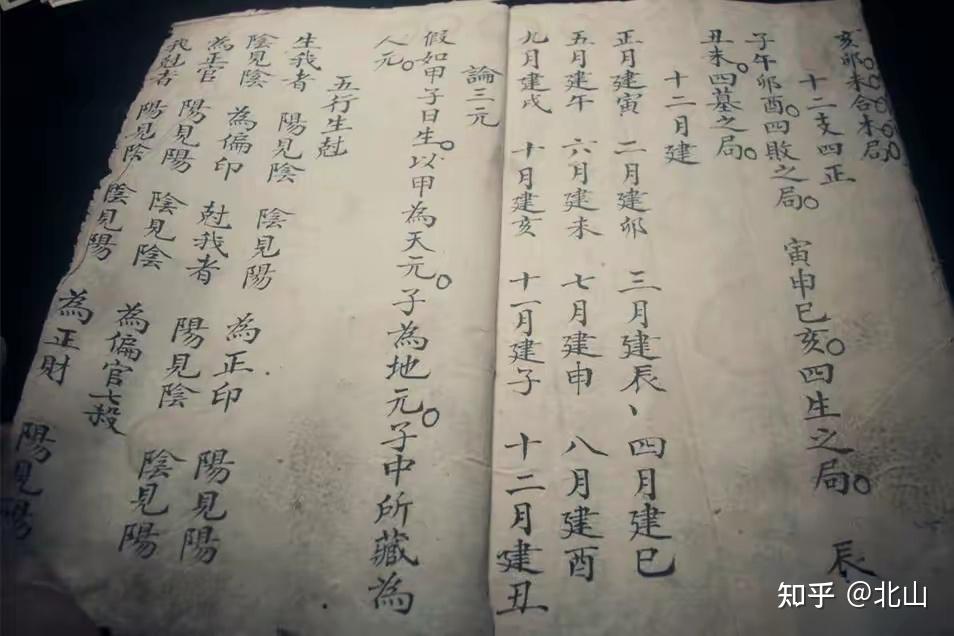 亥卯未合木局。
十二支四正
子午卯酉。四敗之局。 寅申巳亥。四生之局。 辰
丑未。四墓之局。
十二月建
正月建寅 二月建卯 三月建辰、 四月建巳
五月建午 六月建未 七月建申 八月建酉
九月建戌 十月建亥 十一月建子 十二月建丑
論三元
假如甲子日生。以甲為天元。子為地元。子中所藏為
人元。
五行生尅
生我者 陽見陰 陰見陽 為正印 陽見陽
陰見陰 為偏印 尅我者 陽見陰 陰見陽
為正官 陽見陽 陰見陰 為偏官七殺
我尅者 陽見陰 陰見陽 為正財 陽見陽
知乎 @北山